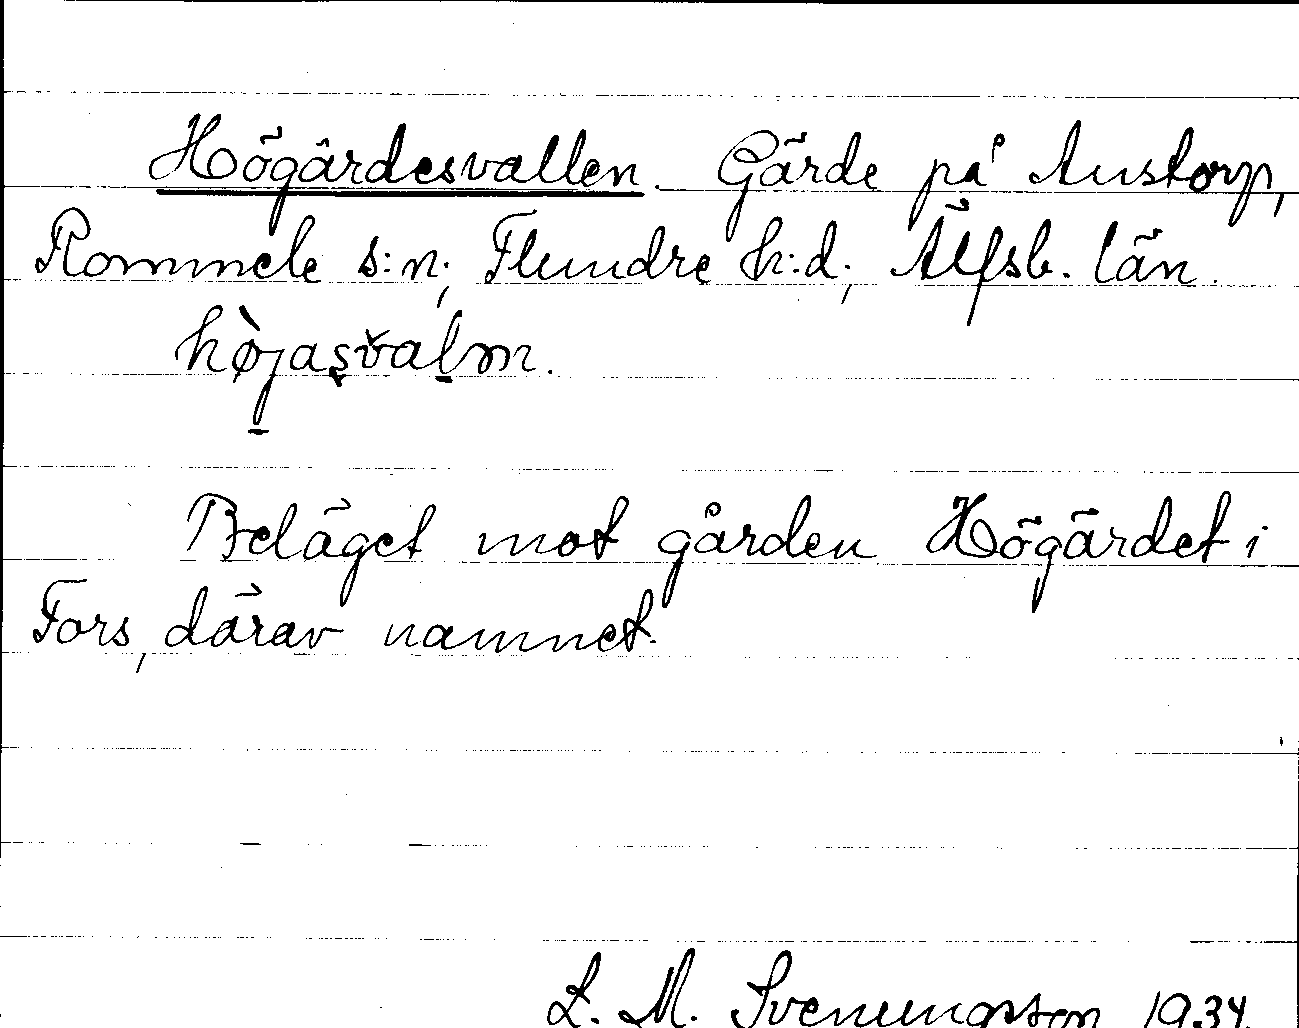 Högärdesvallen. Gärde på Austorp,
Rommele s:n; Flundre h:d; Älfsb. län.
hòjasvalm.
Beläget mot gården Högärdet i
Fors, därav namnet.
L. M. Svenungsson 1934.